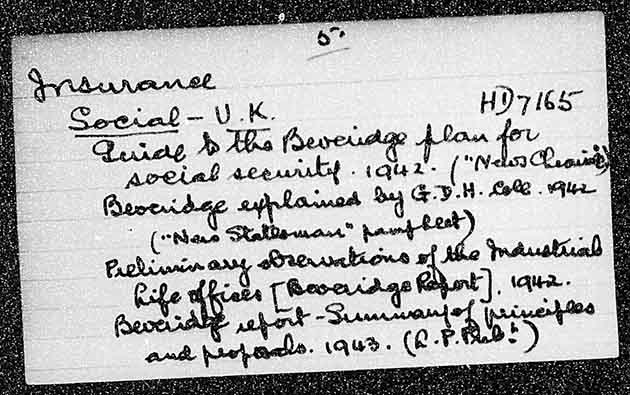 5.
Insurance
Social - U.K. HD7165
Guide to the Beveridge plan for
social security. 1942. ("News Chronicle")
Beveridge explained by G.D.H. Cole. 1942
("New Statesman" pamphlet)
Preliminary observations of the Industrial
Life Offices [Beveridge Report]. 1942.
Beveridge report - Summary of principles
and proposals. 1943. (L.P. Pubn)